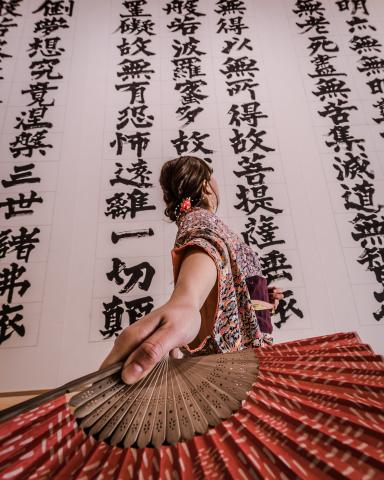 明亦無無明
無老死盡無苦集滅道無智亦
無得以無所得故菩提薩埵依
般若波羅蜜多故
罣礙故無有恐怖遠離一切顛
倒夢想究竟涅槃三世諸佛依